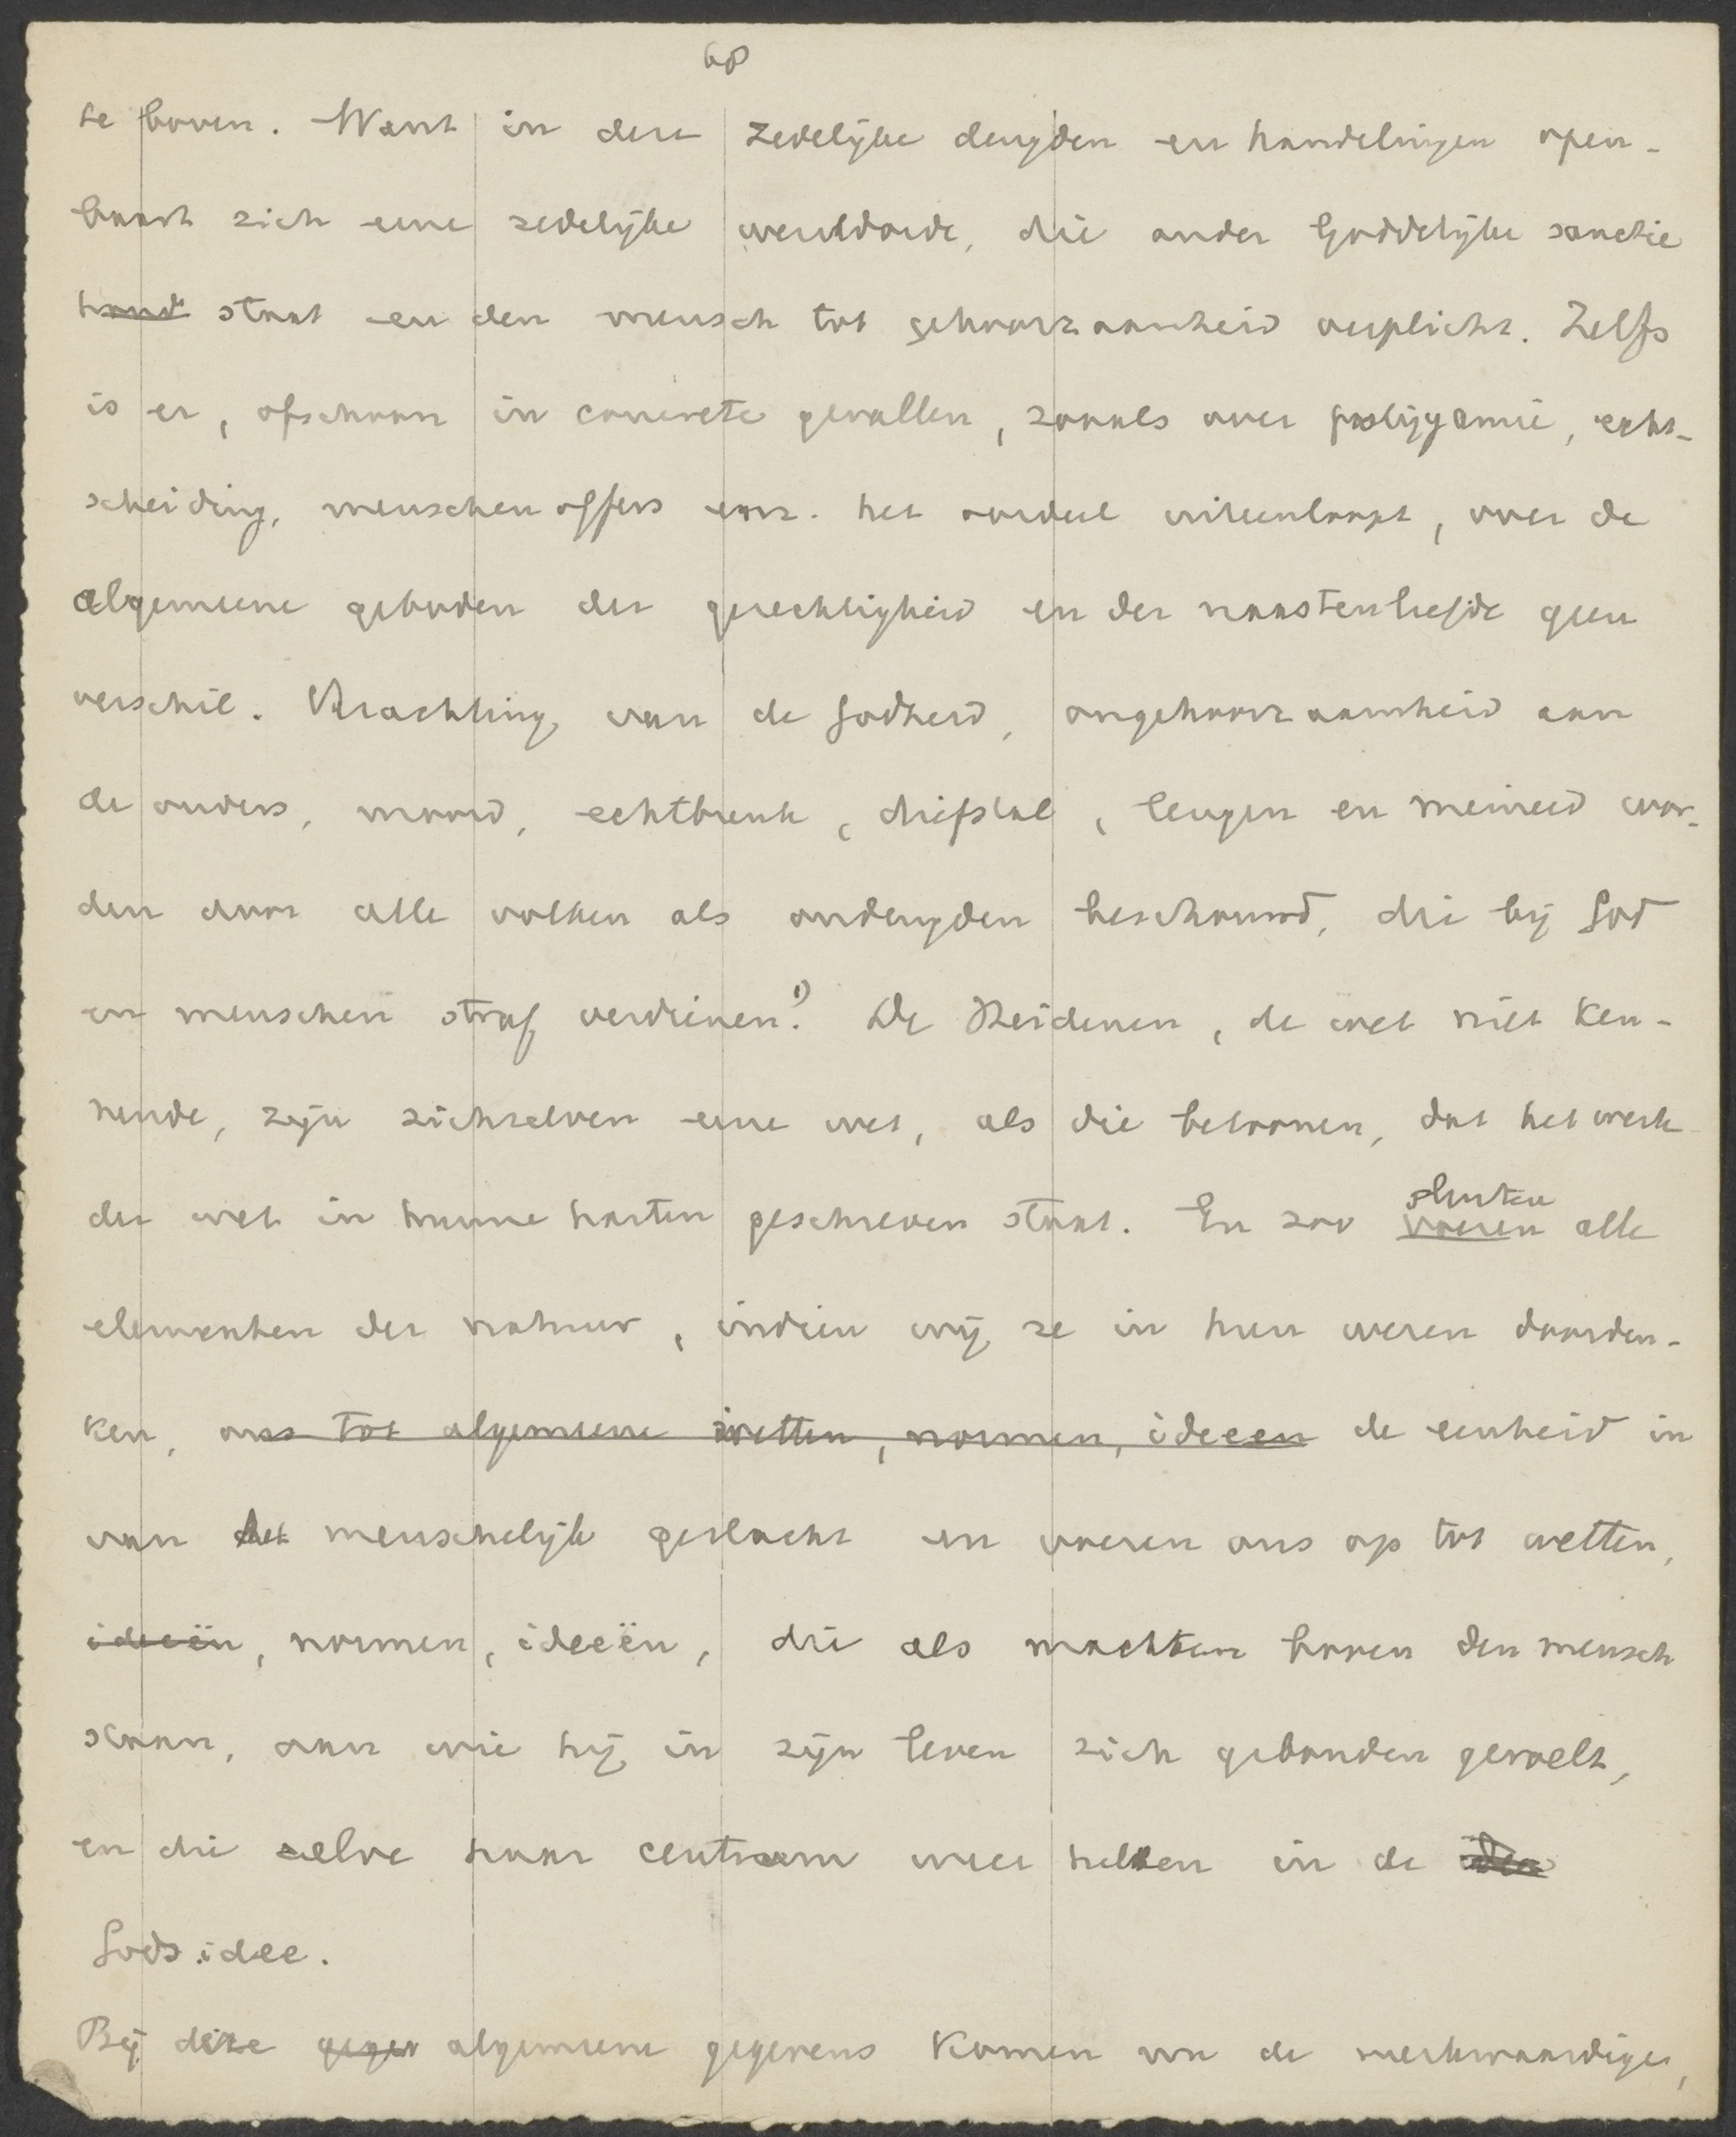 68
te boven. Want in deze zedelijke deugden en handelingen open-
baart zich eene zedelijke wereldorde, die onder Goddelijke sanctie
staat en den mensch tot gehoorzaamheid verplicht. Zelfs
is er, ofschoon in concrete gevallen, zooals over polygamie, echt-
scheiding, menschenoffers enz. het oordeel uiteenloopt, over de
algemeene geboden der gerechtigheid en der naastenliefde geen
verschil. Verachting van de Godheid, ongehoorzaamheid aan
de ouders, moord, echtbreuk, diefstal, leugen en meineed wor-
den door alle volken als ondeugden beschouwd, die bij God
en menschen straf verdienen.1) De Heidenen, de wet niet ken-
nende, zijn zichzelven eene wet, als die betoonen, dat het werk
der wet in hunne harten geschreven staat. En zoo voeren sluiten alle
elementen der natuur, indien wij ze in hun wezen doorden-
ken, ons tot algemeene wetten, normen, ideeen de eenheid in
van het menschelijk geslacht en voeren ons op tot wetten,
ideeën, normen, ideeën, die als machten boven den mensch
staan, aan wie hij in zijn leven zich gebonden gevoelt,
en die zelve haar centrum weer hebben in de idee
Godsidee.
Bij deze gegev algemeene gegevens komen nu de merkwaardige,